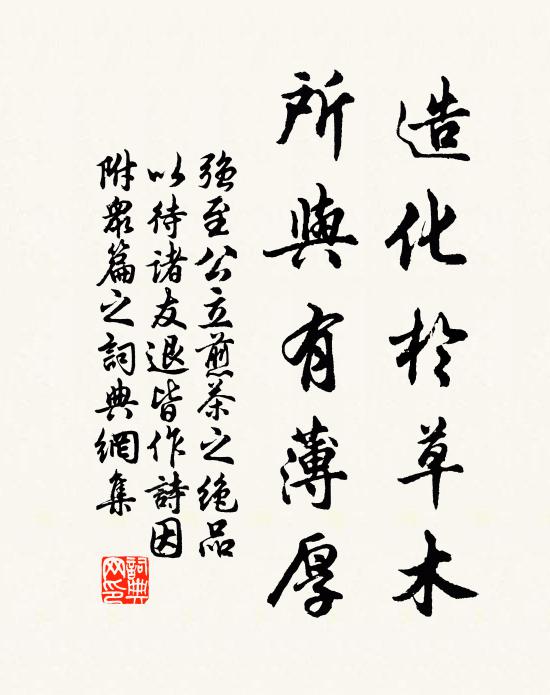 造化於草木
所與有薄厚
強至公立煎茶之绝品
以待诸友退皆作詩因
附眾篇之詞典網集
詞典网印